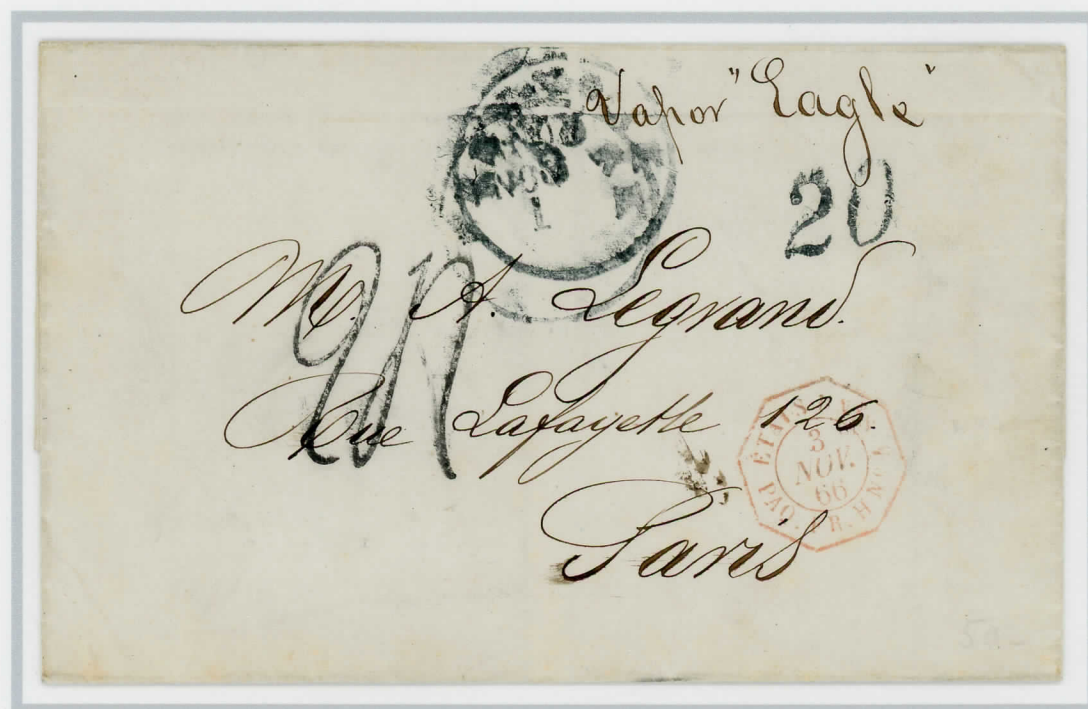 Vapor "Eagle"
NOV
1
20
M. A. Legrand.
Rue Lafayette 126.
Paris
ÉTATS
3
NOV.
66
PAQ. BR. H Nº